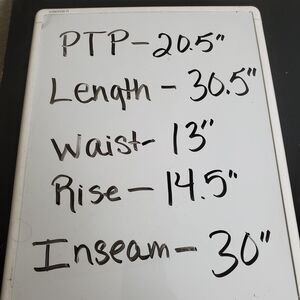 PTP-20.5"
Length-30.5"
Waist-13"
Rise-14.5"
Inseam-30"